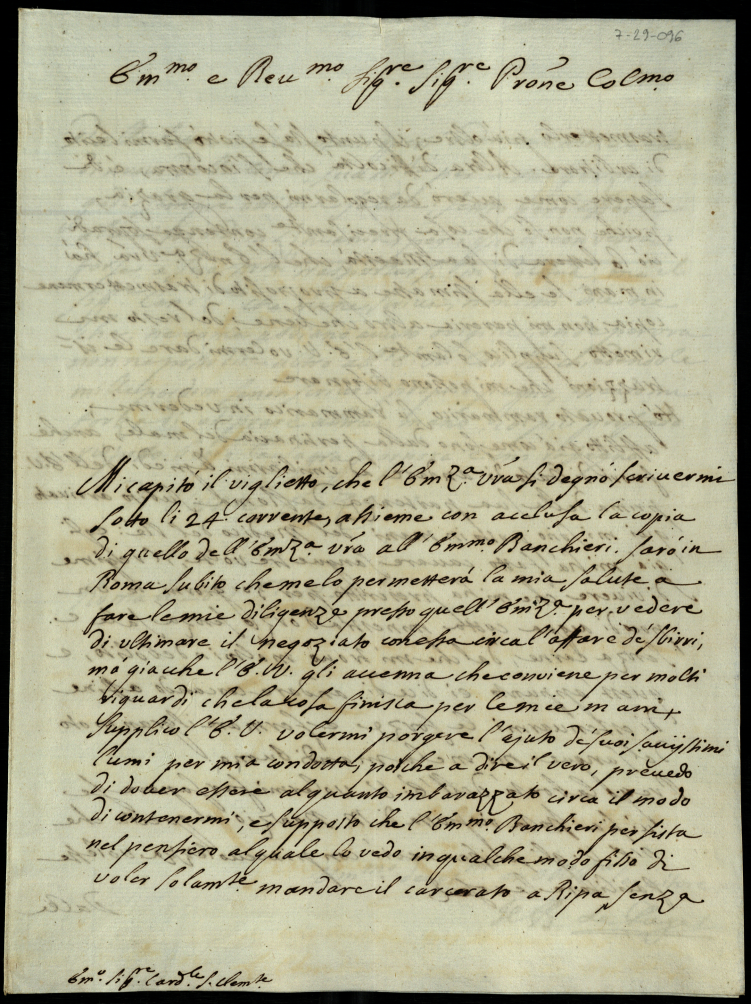 7-29-096
Em.mo e Reu.mo Sig.re Sig.re Pron̄e Col.mo
Mi capitò il viglietto, che l'Em̄za. Vrā si degnò scriuermi
sotto li 24. corrente, assieme con acclusa la copia
di quello dell'Em̄za. Vrā all'Em̄mo Banchieri. Sarò in
Roma subito che me lo permetterà la mia salute a
fare le mie diligenze presso quell'Em̄za. per vedere
di ultimare il negoziato con essa circa l'affare de Sbirri,
mà già che l'E. V. gli accenna che conviene per molti
riguardi che la cosa finisca per le mie mani,
supplico l'E. V. volermi porgere l'ajuto de suoi savijssimi
lumi per mia condotta; poiche a dire il vero, prevedo
di dover essere alquanto imbarazzato circa il modo
di contenermi, e supposto che l'Em̄mo Banchieri persista
nel pensiero al quale lo vedo in qualche modo fisso di
voler solam.te mandare il carcerato a Ripa, senza
Em.o Sig.re Card.le S. Clem.te